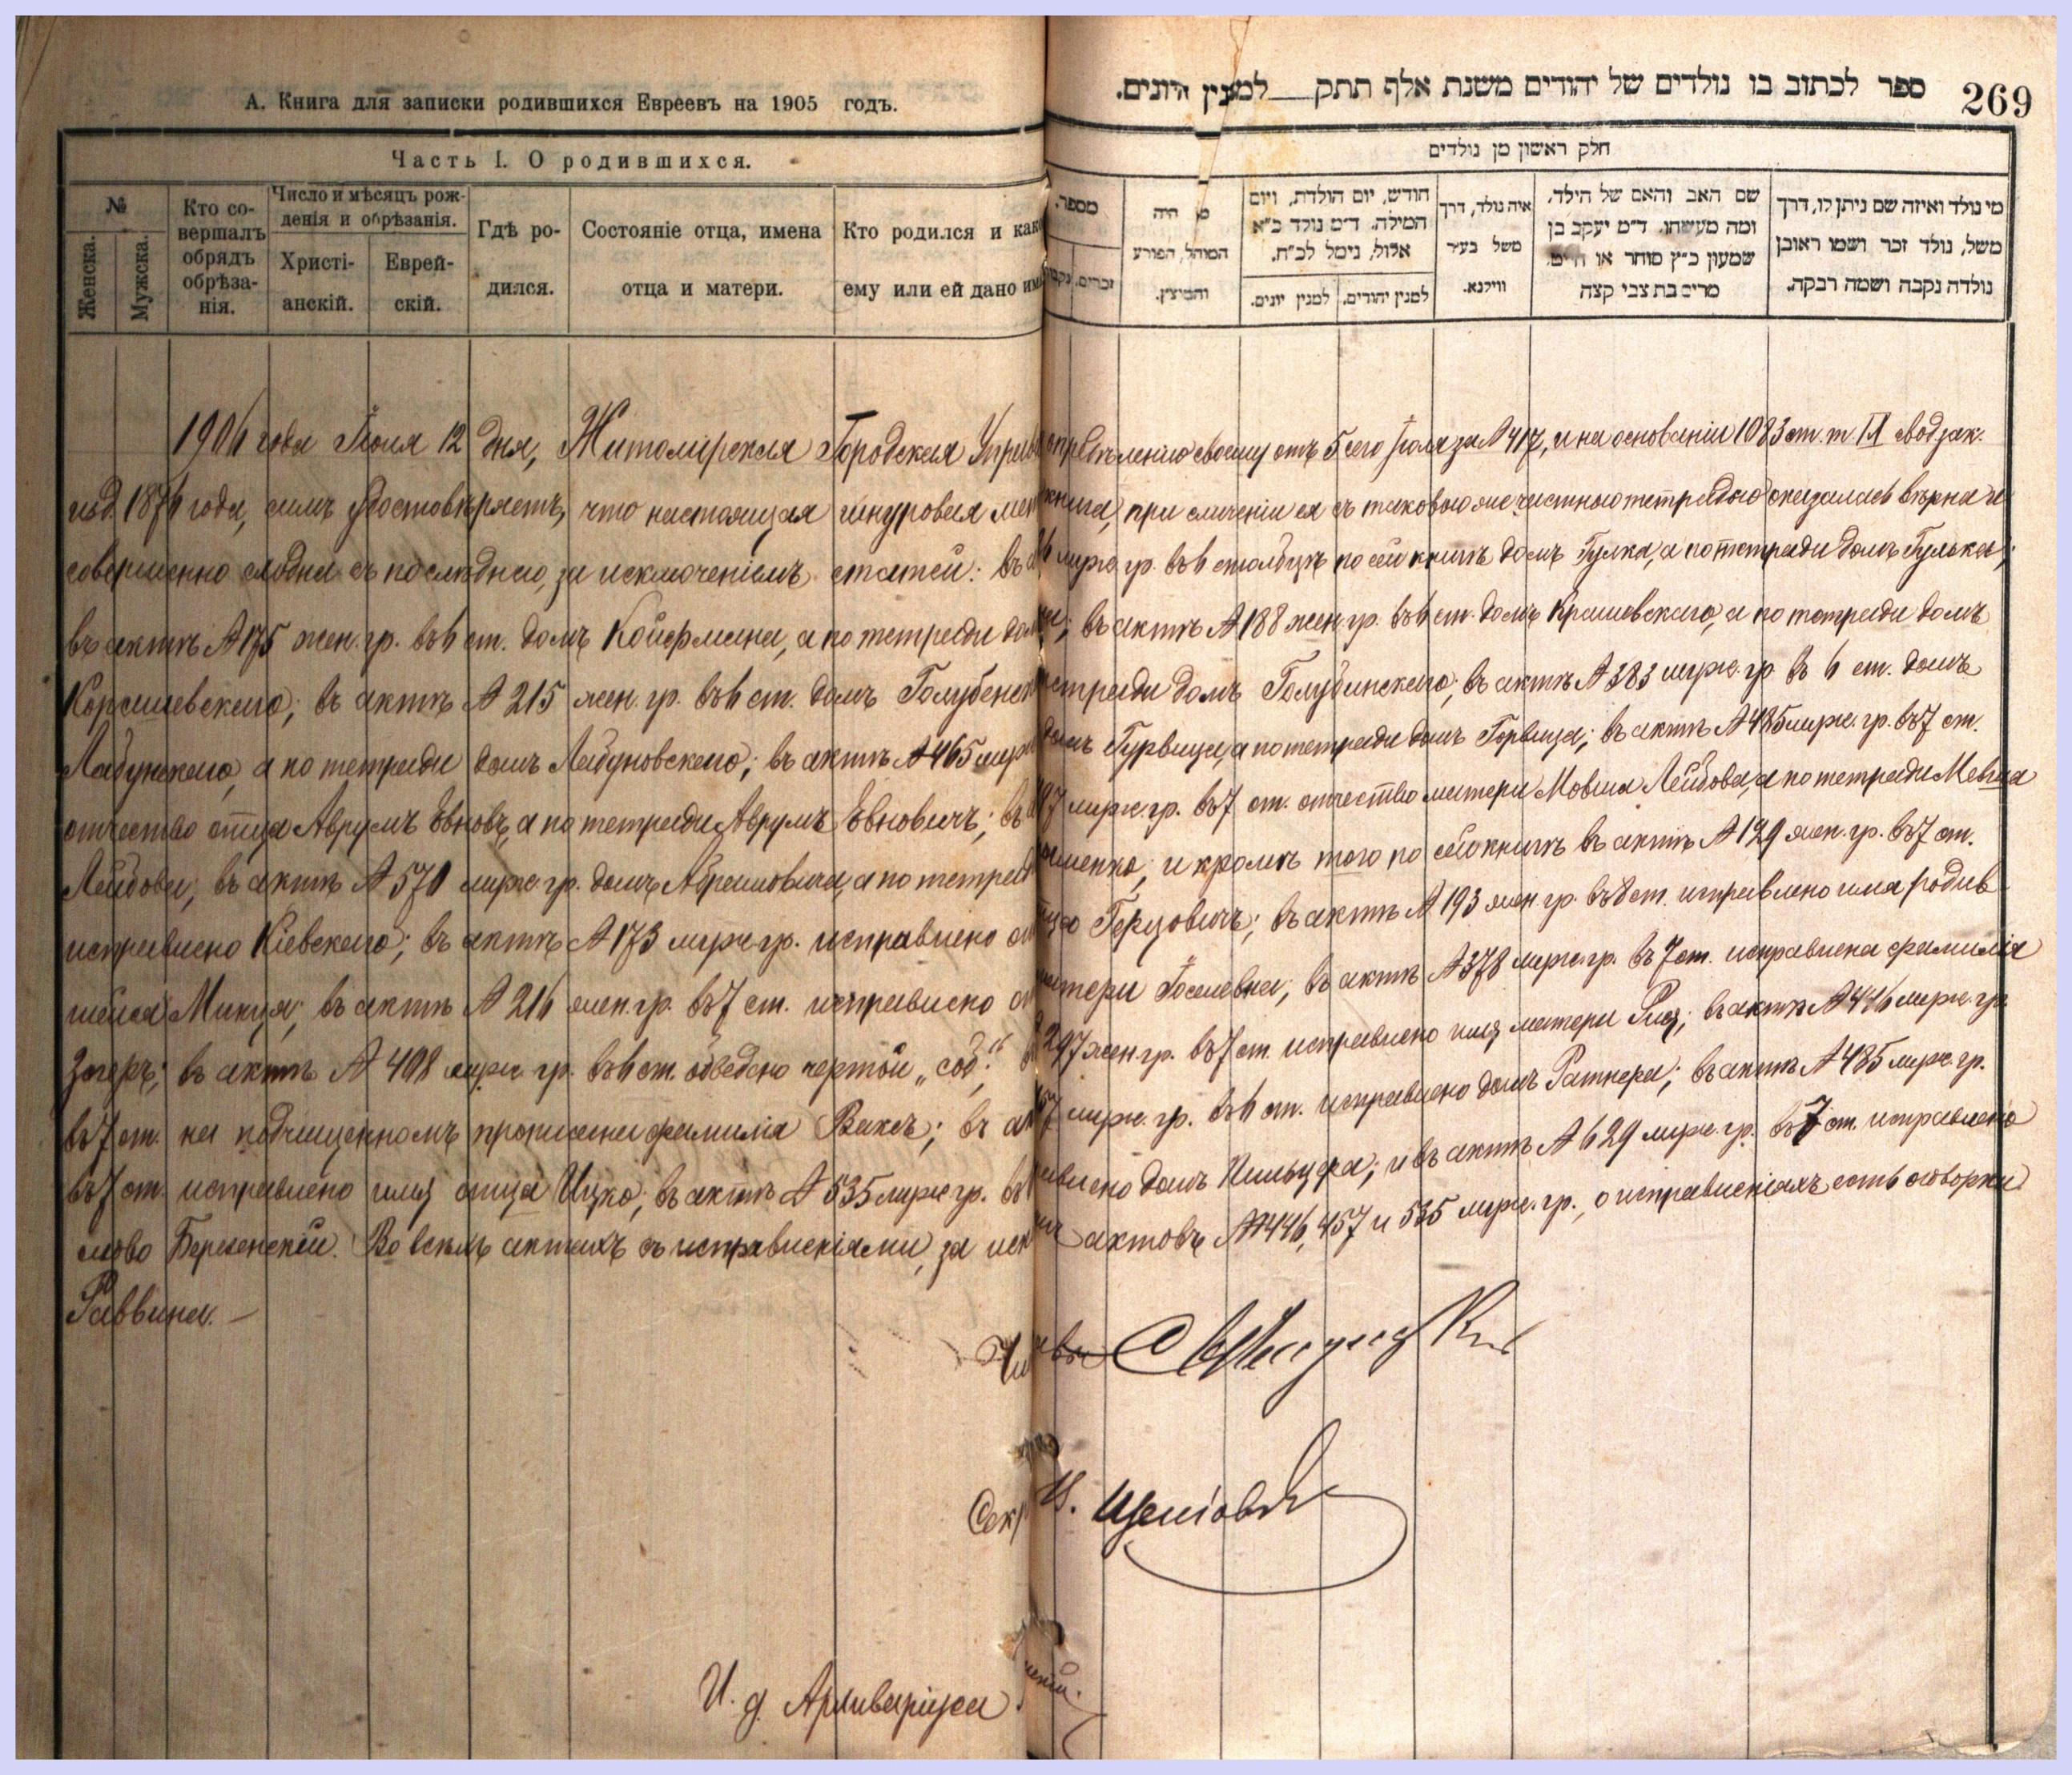 А. Книга для записки родившихся Евреевъ на 1905 годъ.
Часть I. О родившихся.
№
Женска.
Мужска.
Кто совершалъ обрядъ обрѣзанія.
Число и мѣсяцъ рожденія и обрѣзанія.
Христіанскій.
Еврейскій.
Гдѣ родился.
Состояніе отца, имена отца и матери.
Кто родился и како
ему или ей дано им
ספר לכתוב בו נולדים של יהודים משנת אלף תתק___למנין היונים.
269
חלק ראשון מן נולדים
מספר.
זכרים.
מי היה
המוהל, הפורע
והמוצץ.
חודש, יום הולדת, ויום
המילה. ד״מ נולד כ״א
אלול, נימל לכ״ח.
למנין יהודים.
למנין יונים.
איה נולד, דרך
משל בעיר
ווילנא.
שם האב והאם של הילד,
ומה מעשהו. ד״מ יעקב בן
שמעון כ״ץ סוחר או חייט,
מרים בת צבי קצה
מי נולד ואיזה שם ניתן לו, דרך
משל, נולד זכר ושמו ראובן
נולדה נקבה ושמה רבקה.
1906 года Іюля 12 дня, Житомирская Городская Упра лению своему отъ 5 сего Іюля за № 417, и на основаніи 1083 ст. т. IX свод зак.
изд. 1876 года, симъ удостовѣряетъ, что настоящая шнуровая книга, при сличеніи ея съ таковою же частною тетрадью оказалась вѣрна и
совершенно сходна съ послѣднею, за исключеніемъ статей: въ муж. гр. въ 6 столбцѣ по сей книгѣ домъ Гулка, а по тетради домъ Гулька;
въ актѣ № 175 жен. гр. въ 6 ст. домъ Койфмана, а по тетради въ актѣ № 188 жен. гр. въ 6 ст. домъ Крашевскаго, а по тетради домъ
Корашевскаго; въ актѣ № 215 жен. гр. въ 6 ст. домъ домъ Голубинскаго; въ актѣ № 383 муж. гр. въ 6 ст. домъ
Лабунскаго, а по тетради домъ Лабуновскаго; въ актѣ № 465 домъ Гурвица, а по тетради домъ Горвица; въ актѣ № 485 муж. гр. въ 7 ст.
отчество отца Аврумъ Евновъ, а по тетради Аврумъ Евновичъ; муж. гр. въ 7 ст. отчество матери Мовша Лейбова, а по тетради Мевша
Лейбова; въ актѣ № 570 муж. гр. домъ Абрамовича, а по и кромѣ того по сей книгѣ въ актѣ № 129 жен. гр. въ 7 ст.
исправлено Кіевскаго; въ актѣ № 173 муж. гр. исправлено Герцовичъ; въ актѣ № 193 жен. гр. въ 8 ст. исправлено имя родив
шейся въ актѣ № 216 жен. гр. въ 7 ст. исправлено въ актѣ № 378 муж. гр. въ 7 ст. исправлена фамилія
въ актѣ № 408 муж. гр. въ 6 ст. обведено чертой „сод." 297 жен. гр. въ 7 ст. исправлено имя матери въ актѣ № 446 муж. гр.
въ 7 ст. на подчищенномъ прописана фамилія Ваксъ; муж. гр. въ 6 ст. исправлено домъ Ратнера; въ актѣ № 485 муж. гр.
въ 7 ст. исправлено имя отца Ицко; въ актѣ № 535 муж. гр. домъ и въ актѣ № 629 муж. гр. въ 7 ст. исправлено
слово Во всѣхъ актахъ съ исправленіями, за актовъ №№ 446, 457 и 535 муж. гр., о исправленіяхъ есть оговорки
Раввина.
И. д. Архиваріуса